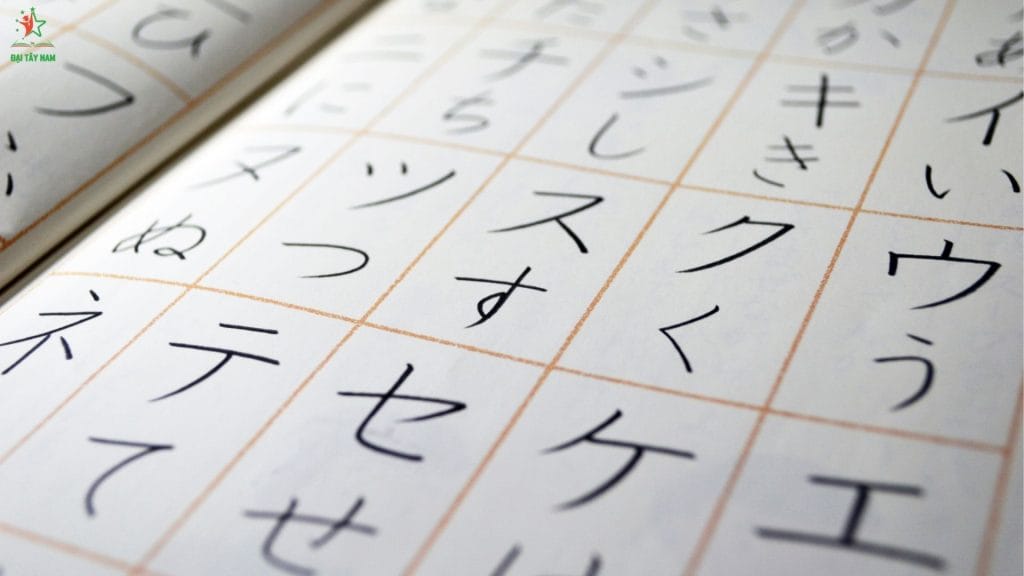 ĐẠI TÂY NAM
あ イ い ウ う エ
か キ き ク く ケ
さ シ し ス す セ せ
チ ち ツ つ テ て
ニ に ヌ ぬ ネ
ひ フ